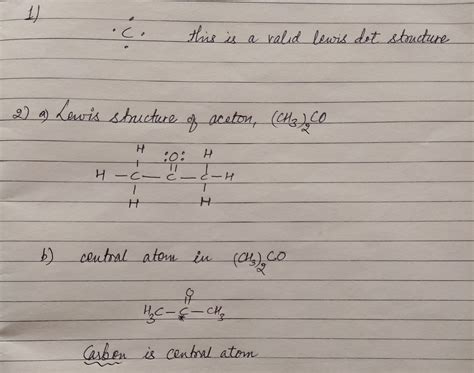 1)
·C· this is a valid lewis dot structure
2) a) Lewis structure of aceton, (CH₃)₂CO
H :O: H
|  ||  |
H — C — C — C — H
|  |
H  H
b) central atom in (CH₃)₂CO
O
||
H₃C — C — CH₃
*
Carbon is central atom